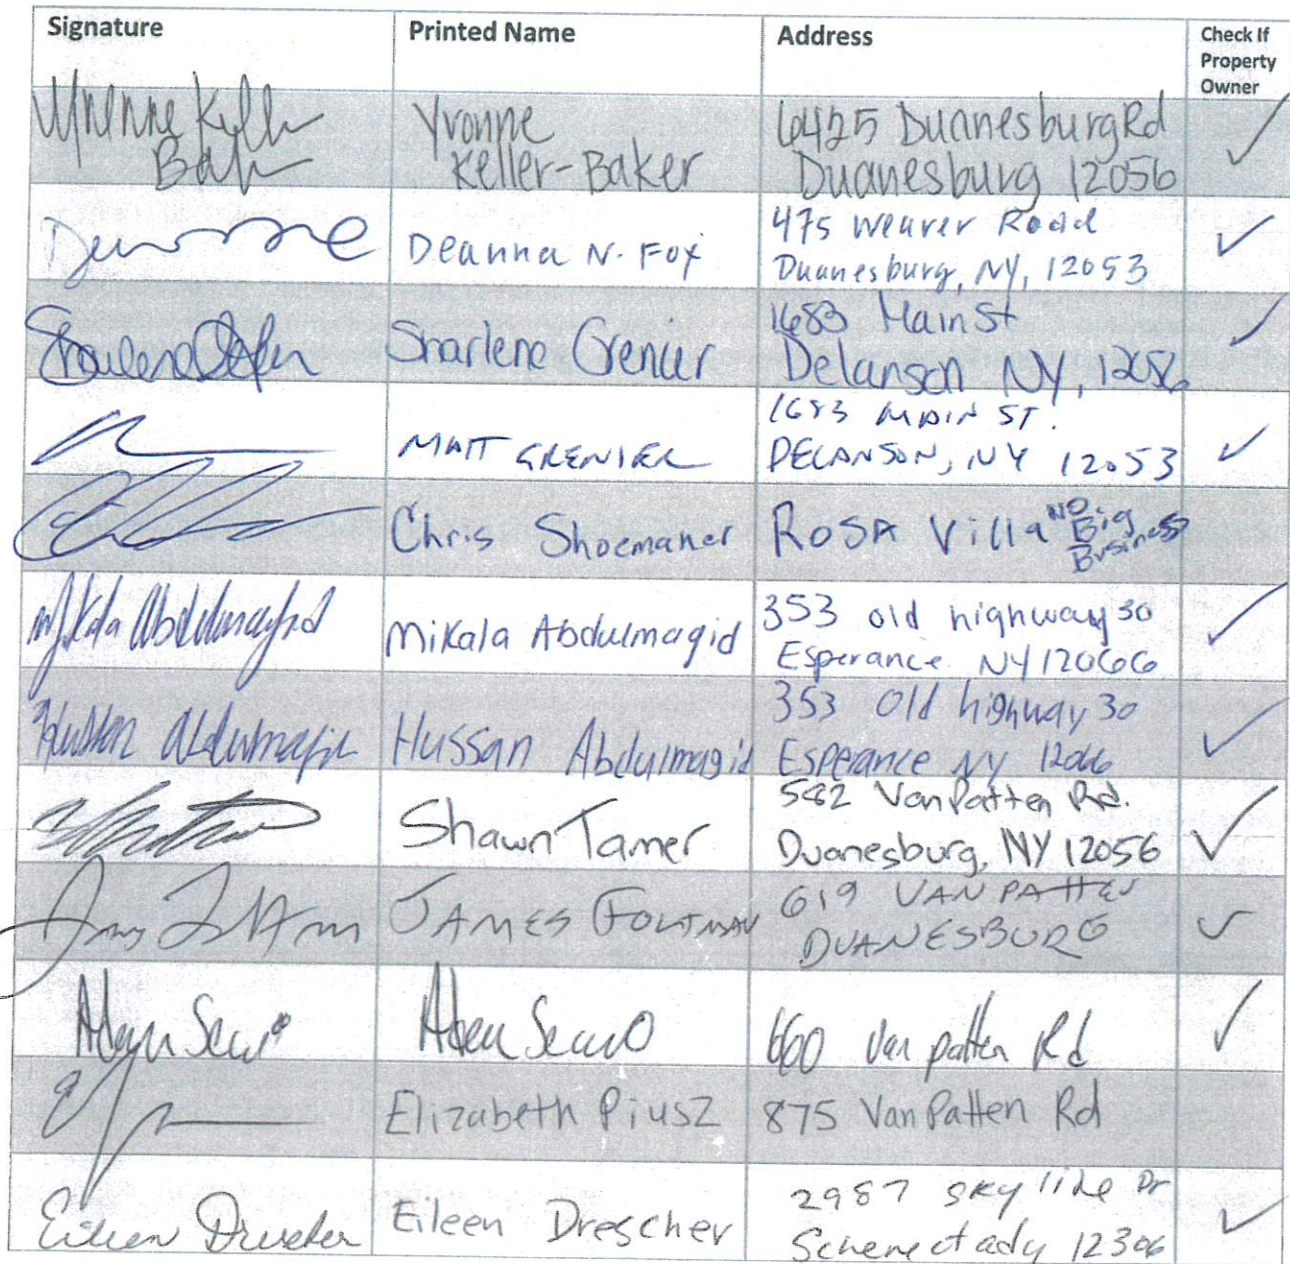 Signature Printed Name Address Check If
Property
Owner
Yvonne Keller Yvonne 6425 Duannesburg Rd
Baker Keller-Baker Duanesburg 12056
Deanna N. Fox 475 Weaver Road
Duanesburg, NY, 12053
Sharlene Grenier 1683 Main St
Delanson NY, 12056
MATT GRENIER 1683 MAIN ST.
DELANSON, NY 12053
Chris Shoemaker ROSA Villa NO
Big
Business
Mikala Abdulmagid Mikala Abdulmagid 353 old highway 30
Esperance NY 12066
Hussan Abdulmagid Hussan Abdulmagid 353 Old highway 30
Esperance NY 12066
Shawn Tamer 582 VanPatten Rd.
Duanesburg, NY 12056
JAMES FOLTMAN 619 VAN PATTEN
DUANESBURG
660 Van patten Rd
Elizabeth Piusz 875 VanPatten Rd
Eileen Drescher Eileen Drescher 2987 skyline Dr
Schenectady 12306